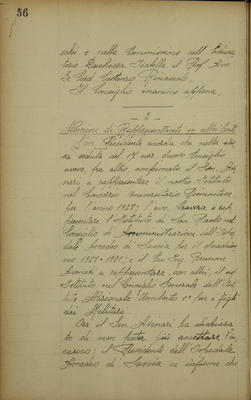 56
schi e nella Commissione dell'Educa-
torio Duchessa Isabella il Prof. Avv.
Gr. Cord. Costanzo Rinaudo.
Il Consiglio unanime approva.
2
Nomine di Rappresentanti in altri Enti.
Presidente ricorda che nella
seduta del 17 questo Consiglio
aveva, fra altro, confermato il Sen.
a rappresentare il nostro Istituto
nel Consorzio Universitario Piemontese
per l'anno 1928; l'avv. a rap-
presentare l'Istituto di San Paolo nel
Consiglio di Amministrazione dell'Ospe-
dale Amedeo di Savoia per il quadrien-
nio 1928-1931; e il
a rappresentare, con altri, il
Istituto nel Consiglio Generale dell'Isti-
tuto Nazionale Umberto I° per i figli
dei Militari.
Ora il Sen. ha dichiara-
to di non poter più accettare l'in-
carico; il Presidente dell'Ospedale
Amedeo di Savoia ci informa che